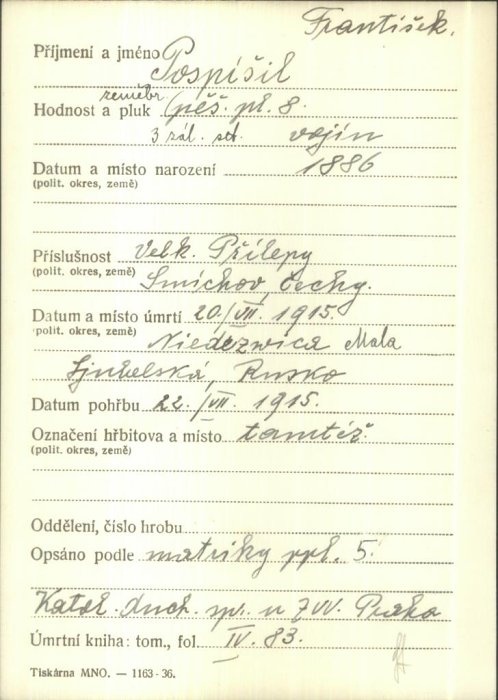 František.
Příjmení a jméno Pospíšil
zeměbr.
Hodnost a pluk pěš. pl. 8.
3 zál. set. vojín
Datum a místo narození 1886
(polit. okres, země)
Příslušnost Velk. Přílepy
(polit. okres, země) Smíchov, Čechy.
Datum a místo úmrtí 20./VII. 1915.
(polit. okres, země) Niedezwica Mala
Ljubelská, Rusko
Datum pohřbu 22./VII. 1915.
Označení hřbitova a místo tamtéž.
(polit. okres, země)
Oddělení, číslo hrobu
Opsáno podle matriky ppl. 5.
Katol. duch. spr. u ZVV. Praha
Úmrtní kniha: tom., fol. IV. 83.
Tiskárna MNO. — 1163-36.